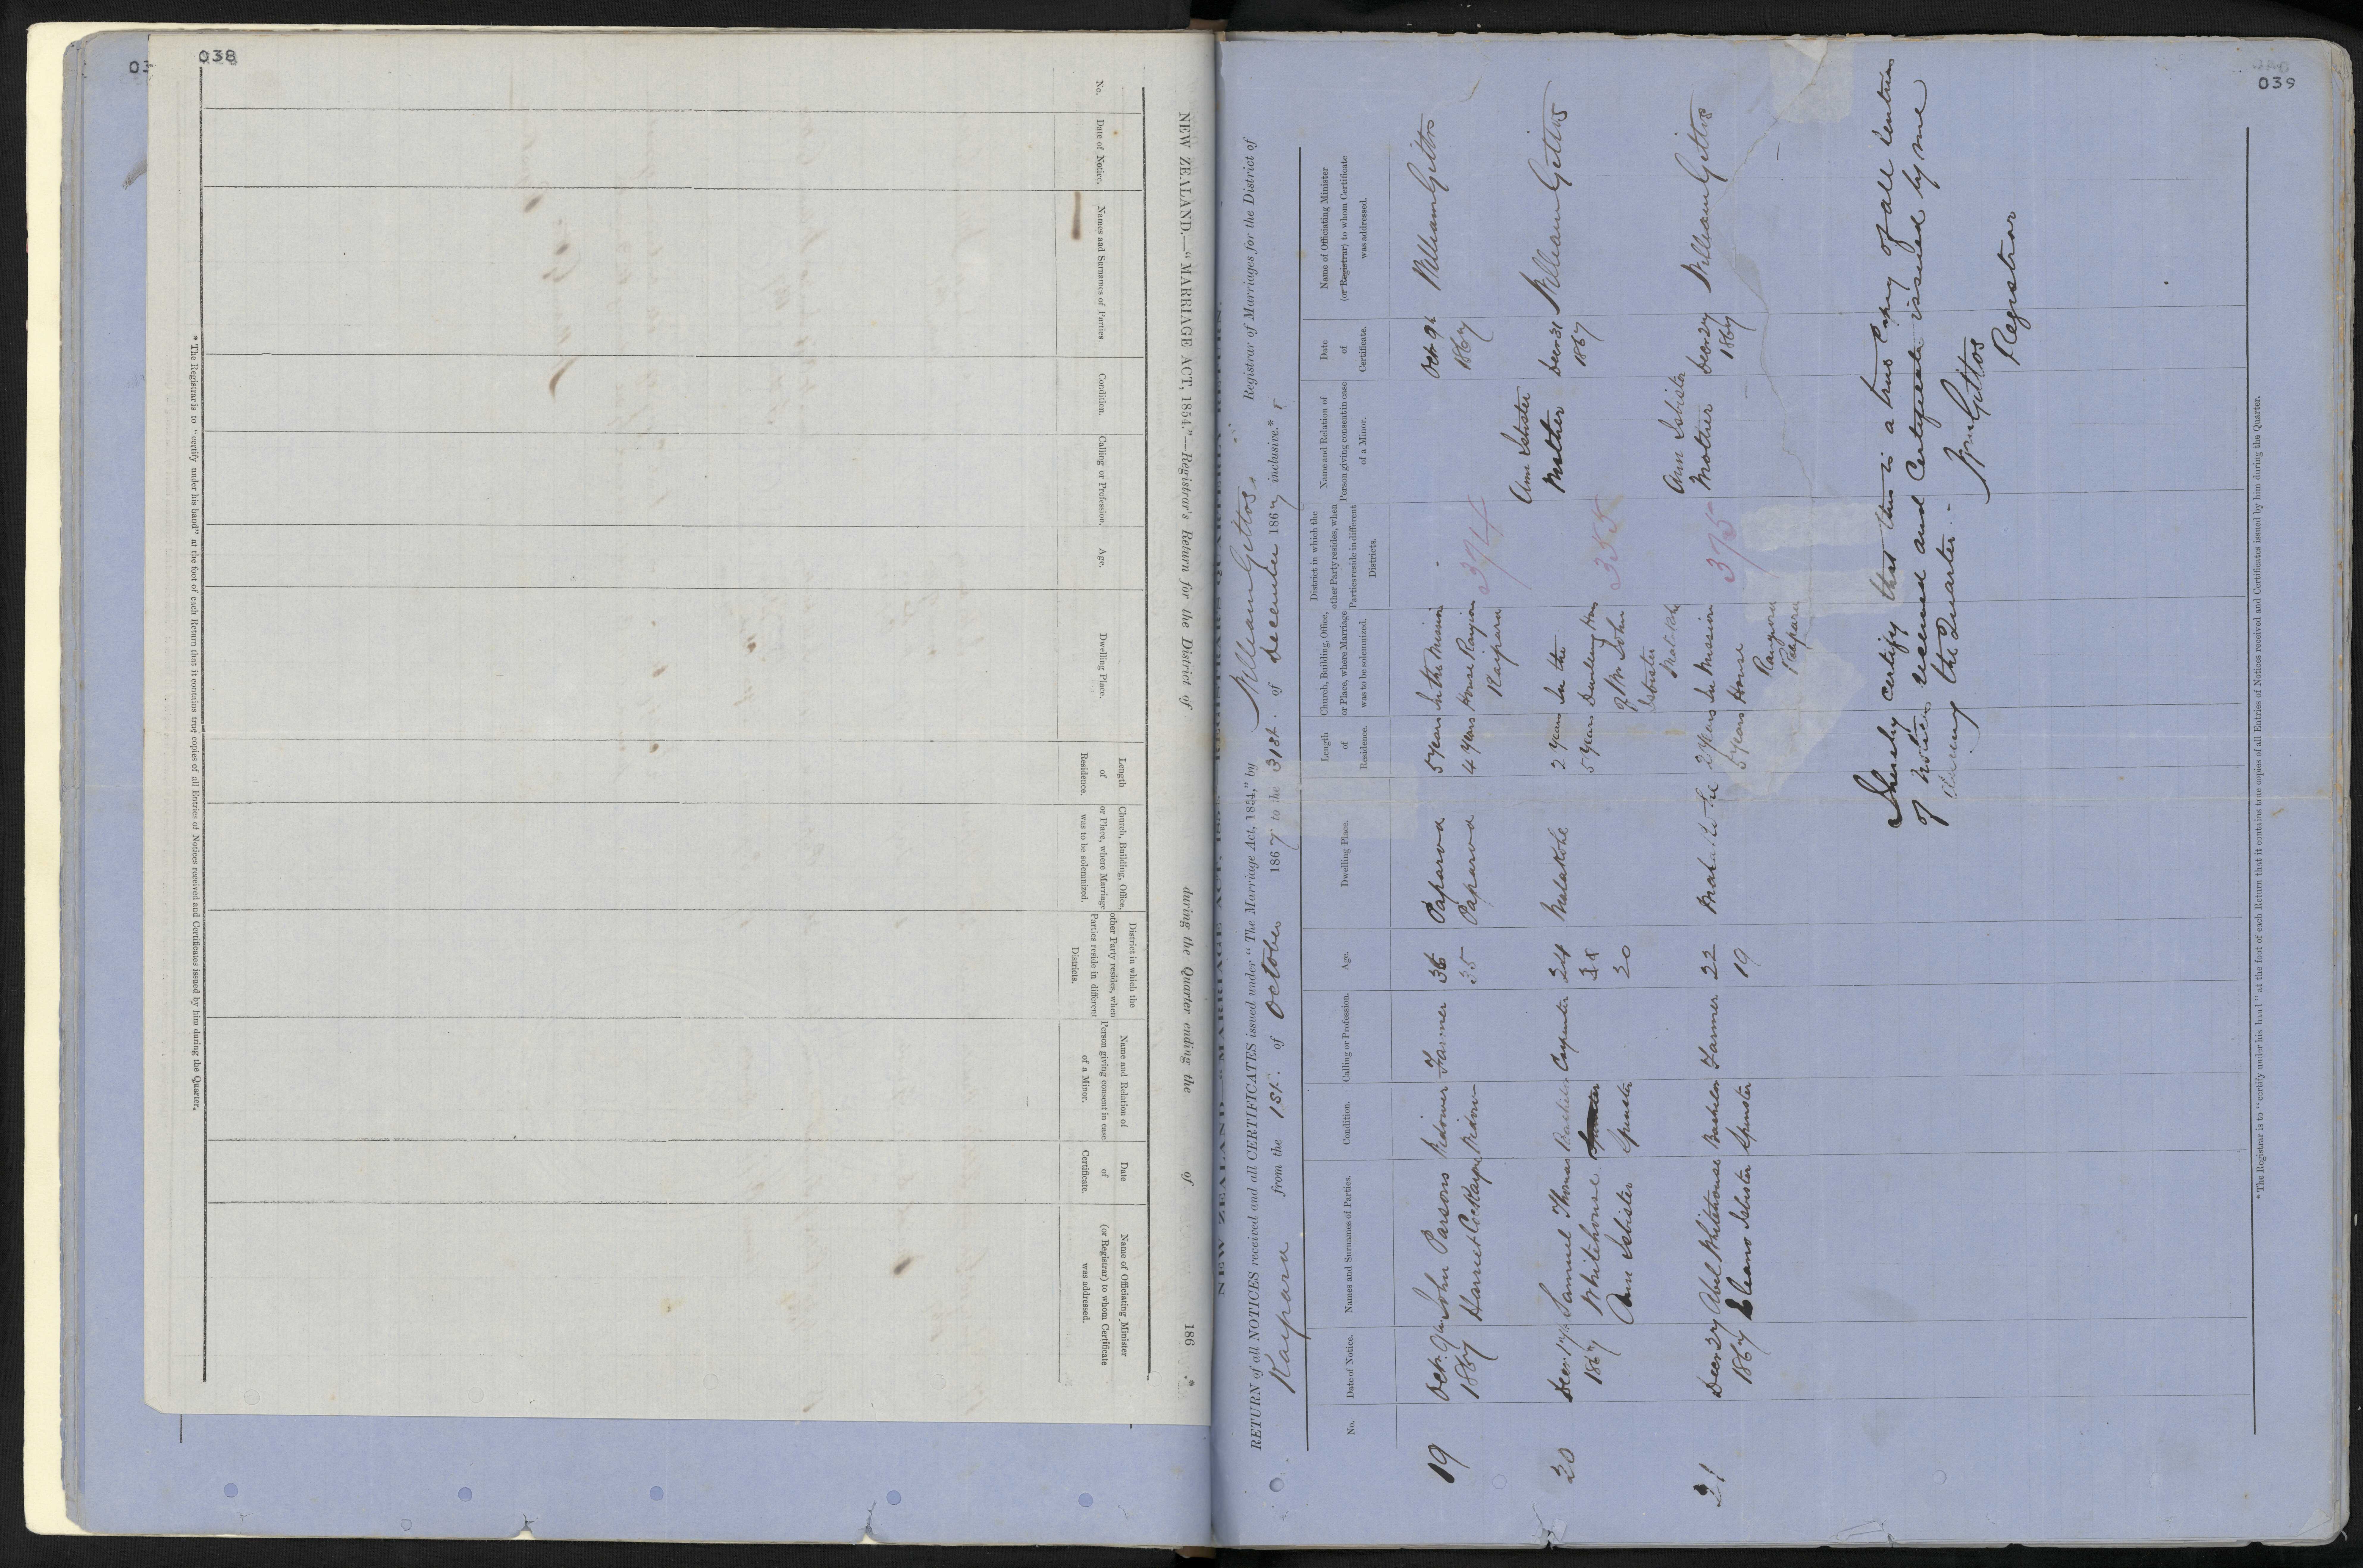 038
NEW ZEALAND.—"MARRIAGE ACT, 1854."—Registrar's Return for the District of during the Quarter ending the of 186 .*
No.
Date of Notice.
Names and Surnames of Parties
Condition.
Calling or Profession.
Age.
Dwelling Place.
Length
of
Residence.
Church, Building, Office,
or Place, where Marriage
was to be solemnized.
District in which the
other Party resides, when
Parties reside in different
Districts.
Name and Relation of
Person giving consent in case
of a Minor.
Date
of
Certificate.
Name of Officiating Minister
(or Registrar) to whom Certificate
was addressed.
* The Registrar is to "certify under his hand" at the foot of each Return that it contains true copies of all Entries of Notices received and Certificates issued by him during the Quarter.
039
RETURN of all NOTICES received and all CERTIFICATES issued under "The Marriage Act, 1854," by William Gittos Registrar of Marriages for the District of
Kaipara from the 1st. of October 1867 to the 31st. of December 1867 inclusive.*
No.
Date of Notice.
Names and Surnames of Parties.
Condition.
Calling or Profession.
Age.
Dwelling Place.
Length
of
Residence.
Church, Building, Office,
or Place, where Marriage
was to be solemnized.
District in which the
other Party resides, when
Parties reside in different
Districts.
Name and Relation of
Person giving consent in case
of a Minor.
Date
of
Certificate.
Name of Officiating Minister
(or Registrar) to whom Certificate
was addressed.
19 Octr. 9th John Parsons Widower Farmer 36 Paparoa 5 years In the Mission Octr 9th William Gittos
1867 Harriet Cockayne Widow 35 Paparoa 4 years House Rangiora 374 1867
Kaipara
Ann Isbister
20 Decr. 17th Samuel Thomas Bachelor Carpenter 24 Matakohe 2 years In the Mother Decr 31 William Gittos
1867 Whitehouse Spinster 5 years Dwelling Hous 355 1867
Ann Isbister Spinster 20 of Mr John
Isbister
Matakohe
Ann Isbister
21 Decr 27 Abel Whitehouse Bachelor Farmer 22 2 years In Mission 375 Mother Decr 27 William Gittos
1867 Eleanor Isbister Spinster 19 5 years House 1867
I hereby certify that this is a true Copy of all Entries
of Notices received and Certificates issued by me
during the Quarter.-
Wm Gittos
Registrar
* The Registrar is to "certify under his hand" at the foot of each Return that it contains true copies of all Entries of Notices received and Certificates issued by him during the Quarter.